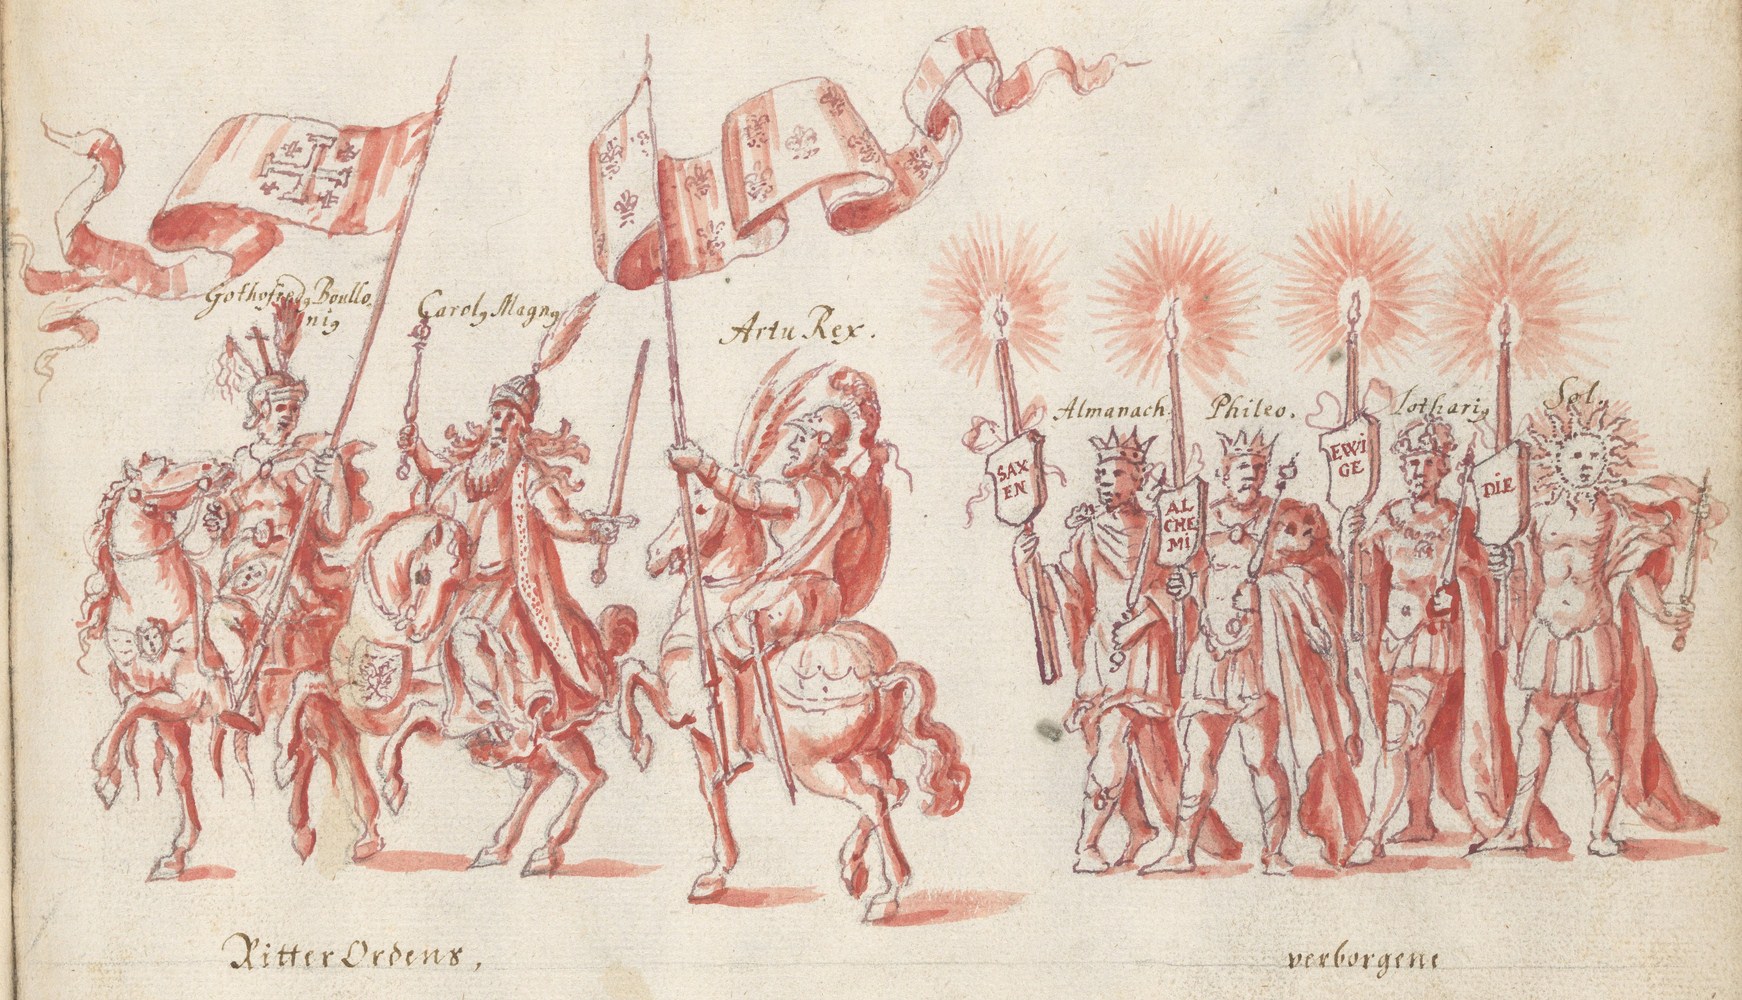 Gothofredꝰ Boullo
niꝰ
Carolꝰ Magnꝰ
Artu Rex.
Almanach.
Phileo.
Lothariꝰ
Sol.
SAX
EN
AL
CHE
MI
EWI
GE
DIE
Ritter Ordens,
verborgene